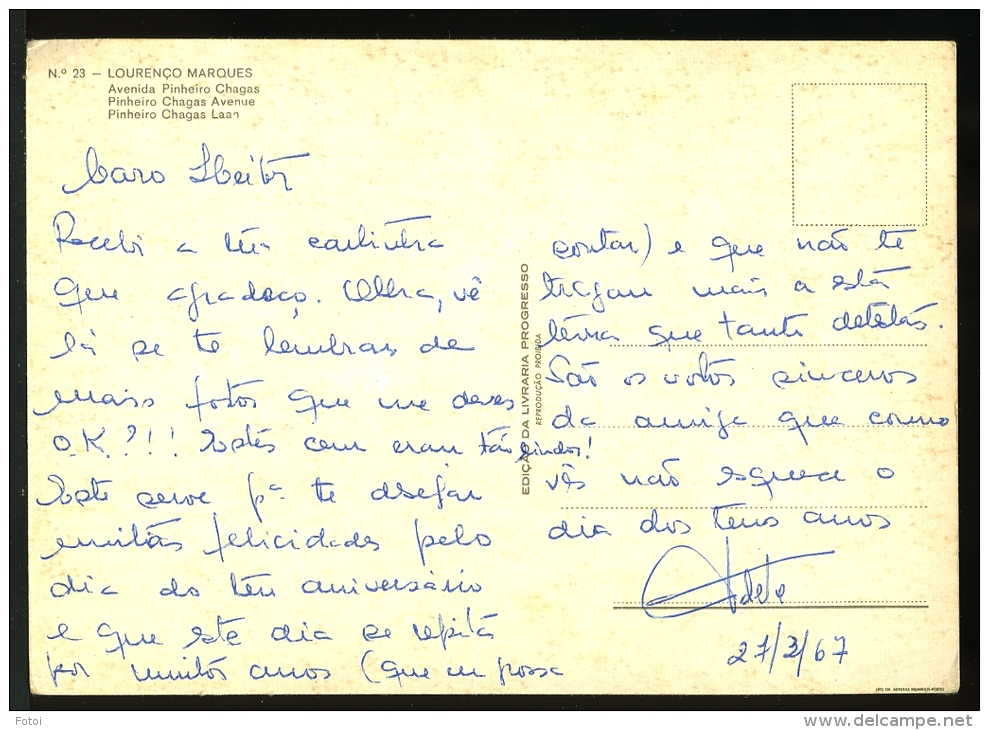 N.º 23 — LOURENÇO MARQUES
Avenida Pinheiro Chagas
Pinheiro Chagas Avenue
Pinheiro Chagas Laan
Caro Heitor
Recebi a tua cartinha
que agradeço. Olha, vê
lá se te lembras de
mais fotos que me deves
O.K.?!!! Estes eram tão lindos!
Este serve pª te desejar
muitas felicidades pelo
dia do teu aniversário
e que este dia se repita
por muitos anos (que eu possa
contar) e que não te
tragam mais a esta
terra que tanto detestas.
São os votos sinceros
da amiga que como
vês não esquece o
dia dos teus anos
27/3/67
EDIÇÃO DA LIVRARIA PROGRESSO
REPRODUÇÃO PROIBIDA
Fotoi
www.delcampe.net